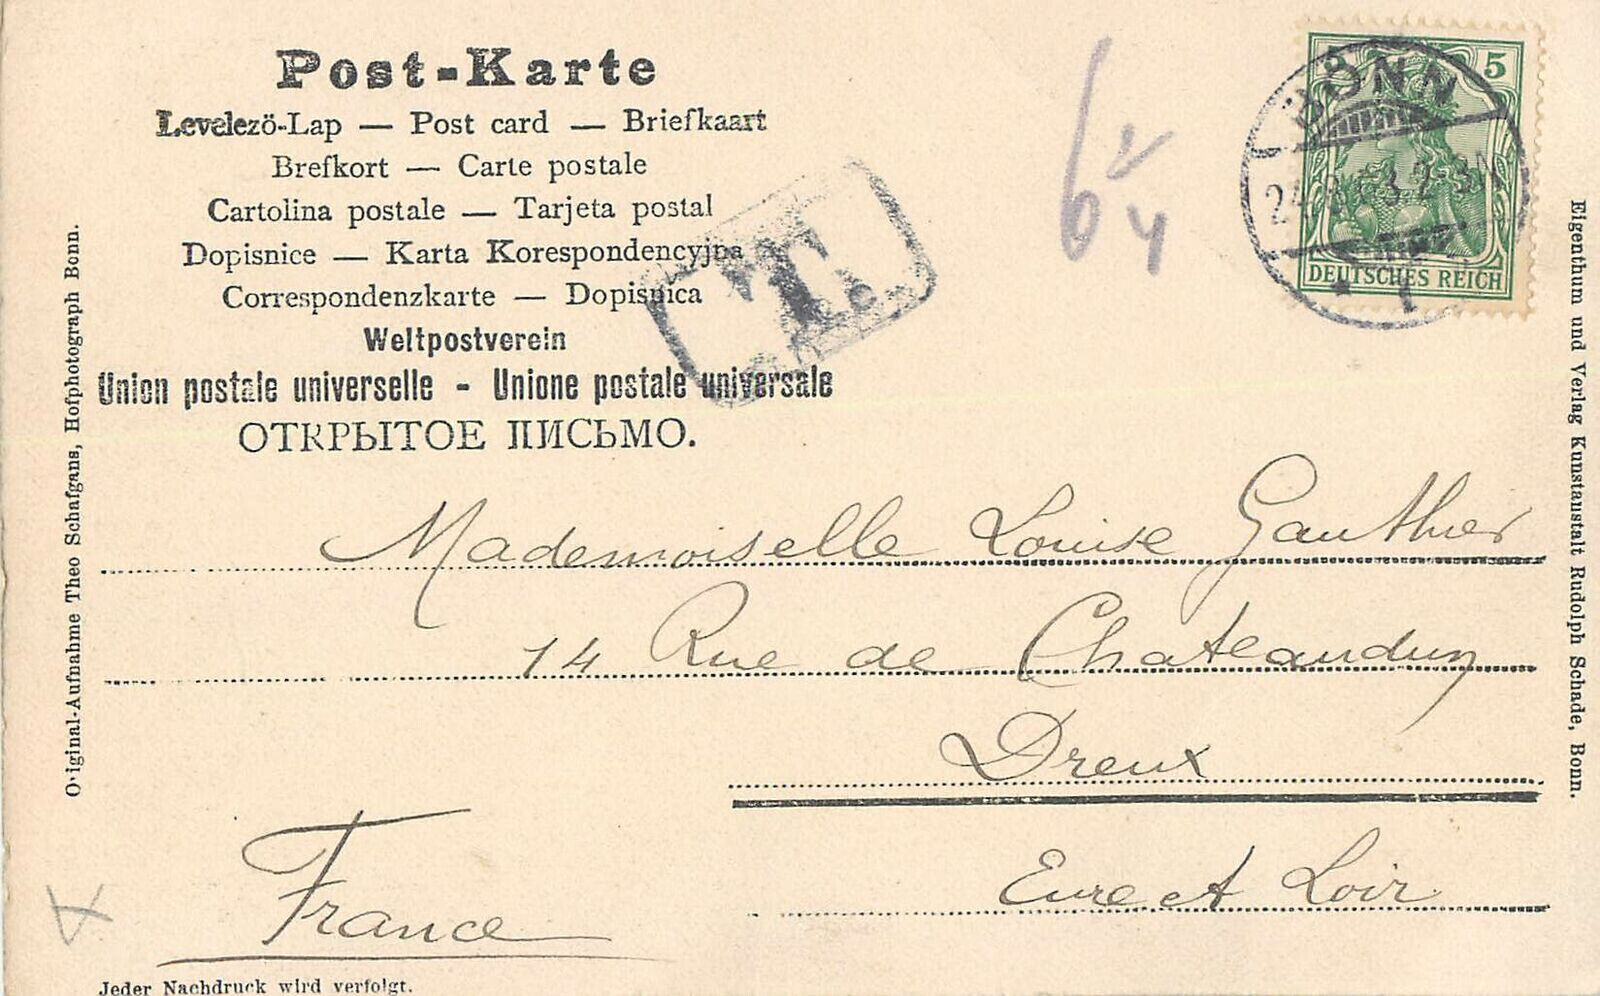 Post-Karte
Levelezö-Lap — Post card — Briefkaart
Brefkort — Carte postale
Cartolina postale — Tarjeta postal
Dopisnice — Karta Korespondencyjna
Correspondenzkarte — Dopisnica
Weltpostverein
Union postale universelle - Unione postale universale
ОТКРЫТОЕ ПИСЬМО.
T.
6
5
BONN
DEUTSCHES REICH
Mademoiselle Louise Gauthier
14 Rue de Chateaudun
Dreux
Eure et Loir
France
Original-Aufnahme Theo Schafgans, Hofphotograph Bonn.
Eigenthum und Verlag Kunstanstalt Rudolph Schade, Bonn.
Jeder Nachdruck wird verfolgt.